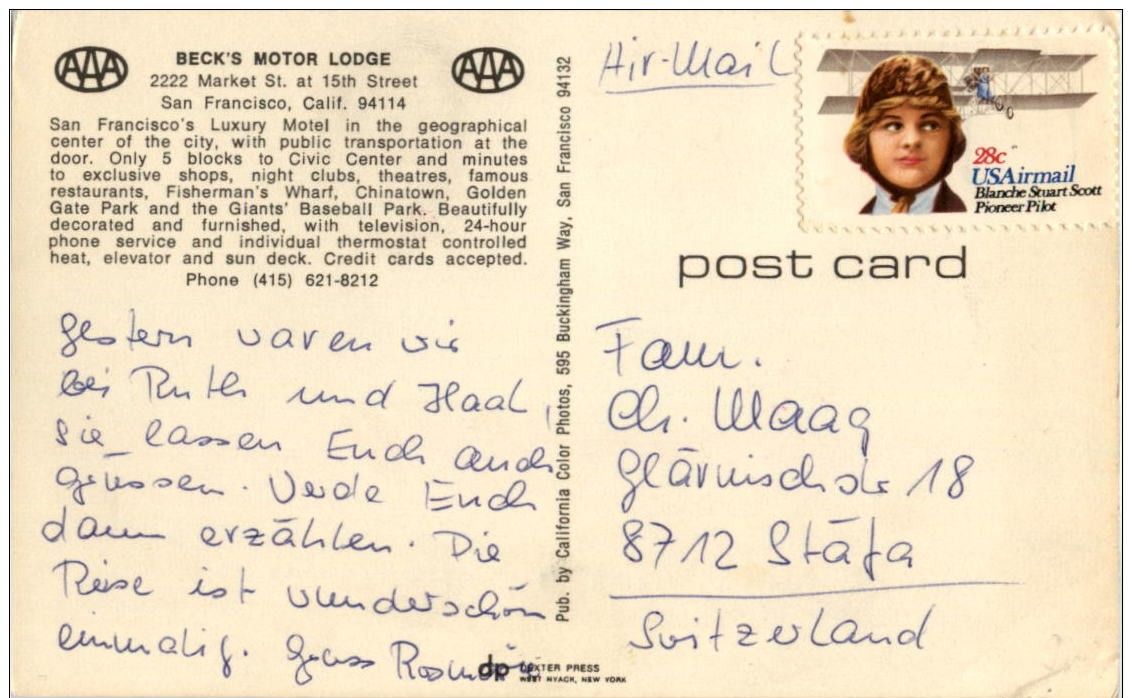 AAA
BECK'S MOTOR LODGE
AAA
2222 Market St. at 15th Street
San Francisco, Calif. 94114
San Francisco's Luxury Motel in the geographical
center of the city, with public transportation at the
door. Only 5 blocks to Civic Center and minutes
to exclusive shops, night clubs, theatres, famous
restaurants, Fisherman's Wharf, Chinatown, Golden
Gate Park and the Giants' Baseball Park. Beautifully
decorated and furnished, with television, 24-hour
phone service and individual thermostat controlled
heat, elevator and sun deck. Credit cards accepted.
Phone (415) 621-8212
Gestern waren wir
bei Ruth und
sie lassen Euch auch
grüssen. Werde Euch
dann erzählen. Die
Reise ist wunderschön
einmalig. Gruss
dp DEXTER PRESS
WEST NYACK, NEW YORK
Pub. by California Color Photos, 595 Buckingham Way, San Francisco 94132
Air-Mail
28c
USAirmail
Blanche Stuart Scott
Pioneer Pilot
post card
Fam.
Ch. Maag
Glärnischstr 18
8712 Stäfa
Switzerland